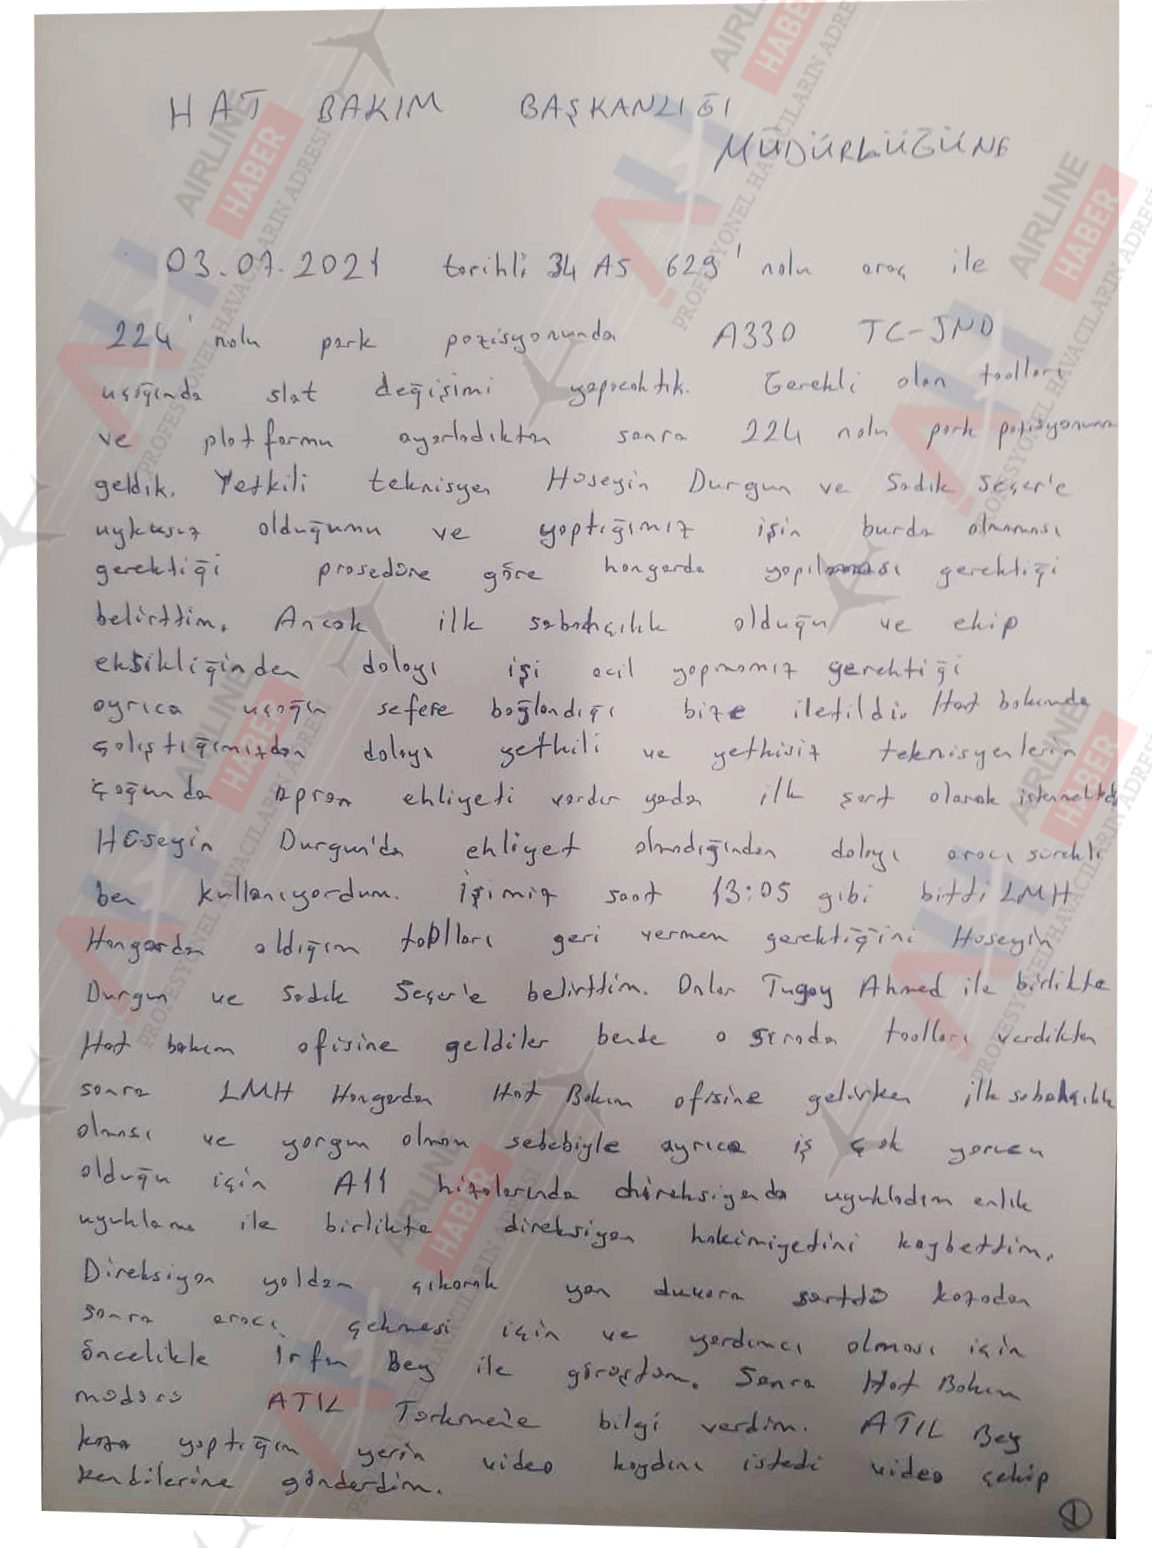 HAT BAKIM BAŞKANLIĞI
MÜDÜRLÜĞÜNE
03.07.2021 tarihli 34 AS 629' nolu araç ile
224' nolu park pozisyonunda A330 TC-JND
uçağında slat değişimi yapacaktık. Gerekli olan toolları
ve platformu ayarladıktan sonra 224 nolu park pozisyonuna
geldik. Yetkili teknisyen Hüseyin Durgun ve Sadık Seçer'e
uykusuz olduğumu ve yaptığımız işin burda olmaması
gerektiği prosedüre göre hangarda yapılması gerektiği
belirttim. Ancak ilk sabahçılık olduğu ve ekip
eksikliğinden dolayı işi acil yapmamız gerektiği
ayrıca uçağın sefere bağlandığı bize iletildi. Hat bakımda
çalıştığımızdan dolayı yetkili ve yetkisiz teknisyenlerin
çoğunda apron ehliyeti vardır yada ilk şart olarak istenmektedir
Hüseyin Durgun'da ehliyet olmadığından dolayı aracı sürekli
ben kullanıyordum. İşimiz saat 13:05 gibi bitti LMH
Hangardan aldığım toolları geri vermem gerektiğini Hüseyin
Durgun ve Sadık Seçer'e belirttim. Onlar Tugay Ahmed ile birlikte
Hat bakım ofisine geldiler bende o sırada toolları verdikten
sonra LMH Hangardan Hat Bakım ofisine gelirken ilk sabahçılık
olması ve yorgun olmam sebebiyle ayrıca iş çok yorucu
olduğu için A11 hizalarında direksiyonda uyukladım anlık
uyuklama ile birlikte direksiyon hakimiyetini kaybettim.
Direksiyon yoldan çıkarak yan duvara sürttü kazadan
sonra aracı çekmesi için ve yardımcı olması için
öncelikle İrfan Bey ile görüştüm. Sonra Hat Bakım
müdürü ATIL Türkmen'e bilgi verdim. ATIL Bey
kaza yaptığım yerin video kaydını istedi video çekip
kendilerine gönderdim.
1
AIRLINE
HABER
PROFESYONEL HAVACILARIN ADRESİ